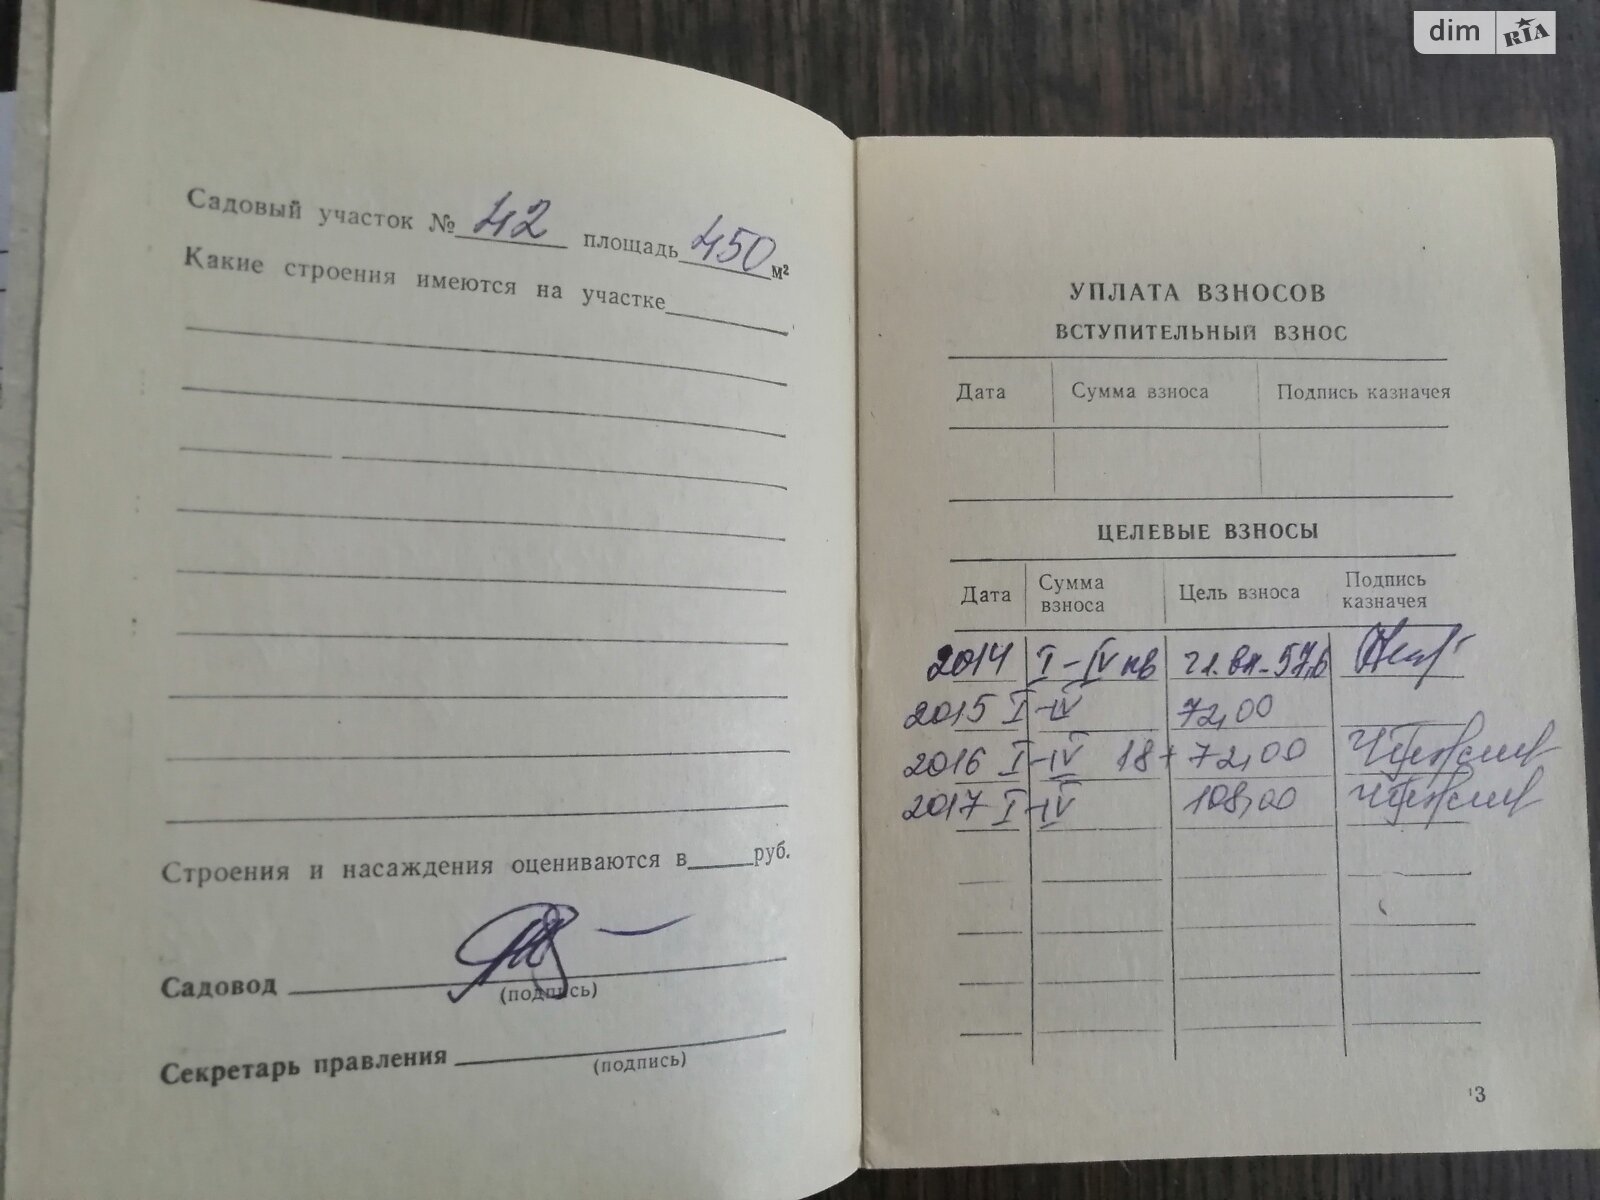 dim RIA
Садовый участок № 42 площадь 450 м²
Какие строения имеются на участке
Строения и насаждения оцениваются в руб.
Садовод
(подпись)
Секретарь правления
(подпись)
УПЛАТА ВЗНОСОВ
ВСТУПИТЕЛЬНЫЙ ВЗНОС
Дата Сумма взноса Подпись казначея
ЦЕЛЕВЫЕ ВЗНОСЫ
Дата Сумма взноса Цель взноса Подпись казначея
2014 I-IV кв чл. вз-57,6
2015 I-IV 72,00
2016 I-IV 18+72,00
2017 I-IV 108,00
3